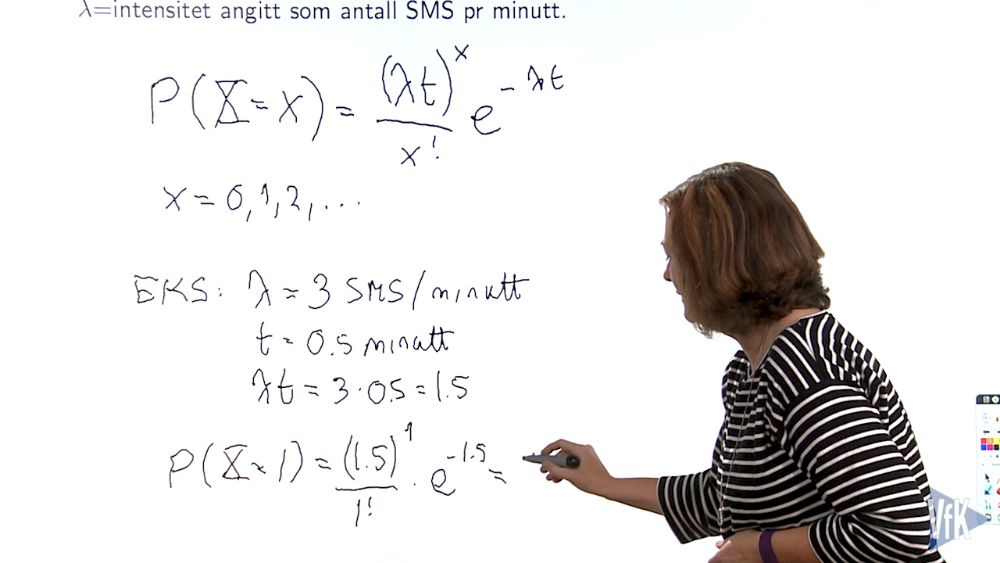 λ=intensitet angitt som antall SMS pr minutt.
P(X=x) = (λt)^x / x! e^-λt
x = 0, 1, 2, ...
EKS: λ = 3 SMS/minutt
t = 0.5 minutt
λt = 3 · 0.5 = 1.5
P(X=1) = (1.5)^1 / 1! · e^-1.5 =
VfK